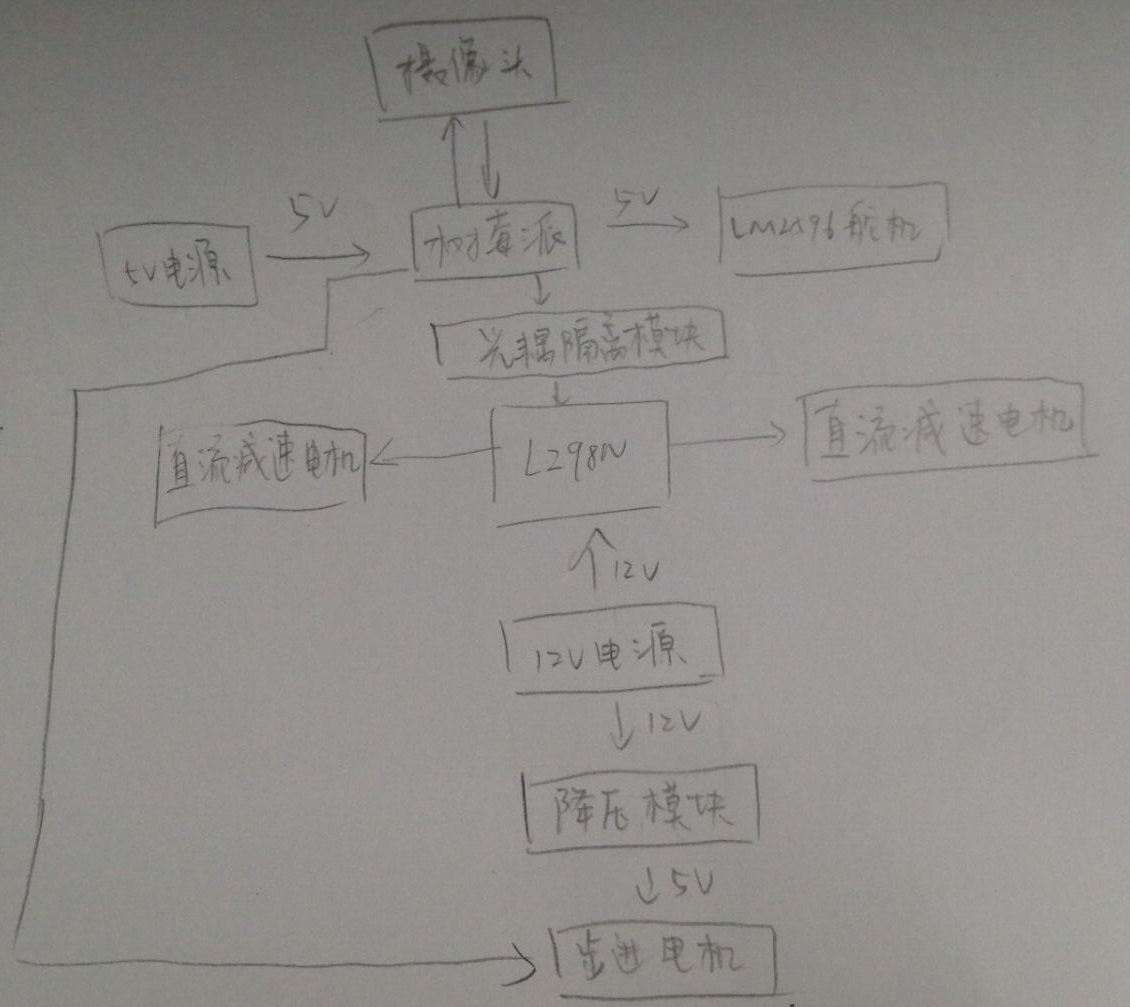 摄像头
5V
5V
5V电源
树莓派
LM2596舵机
光耦隔离模块
直流减速电机
L298N
直流减速电机
12V
12V电源
12V
降压模块
5V
步进电机